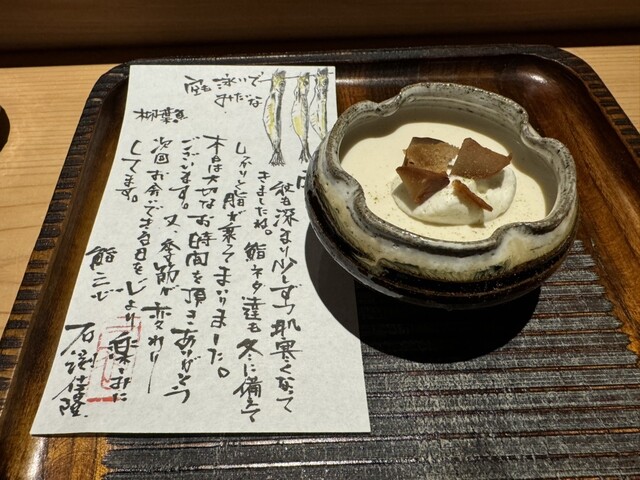 空も泳いで
みたいな
柳葉魚
秋も深まり少しずつ肌寒くなって
きましたね。鮨ネタ達も冬に備えて
しっかりと脂が乗ってまいりました。
本日は大切なお時間を頂きありがとう
ございます。又、季節が変わり
次回お会いできる日を心より楽しみに
してます。
鮨